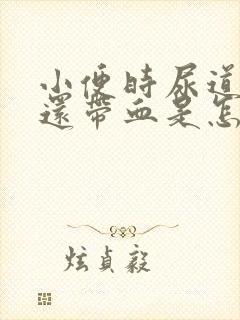 小便時尿道
還帶血是怎
炫貞毅